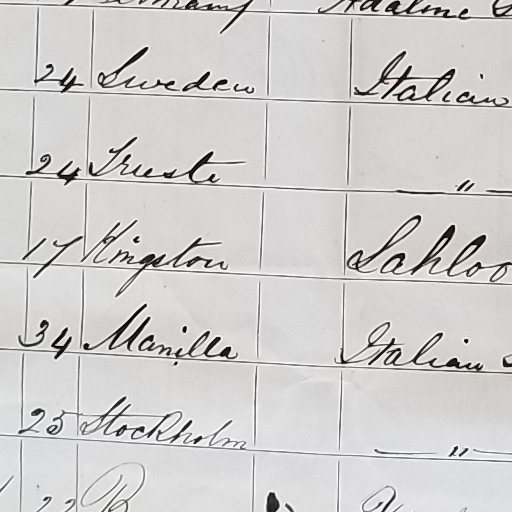 Adaline
24 Sweden Italian
24 Trieste — " —
17 Kingston Sahloo
34 Manilla Italian
25 Stockholm — " —
22